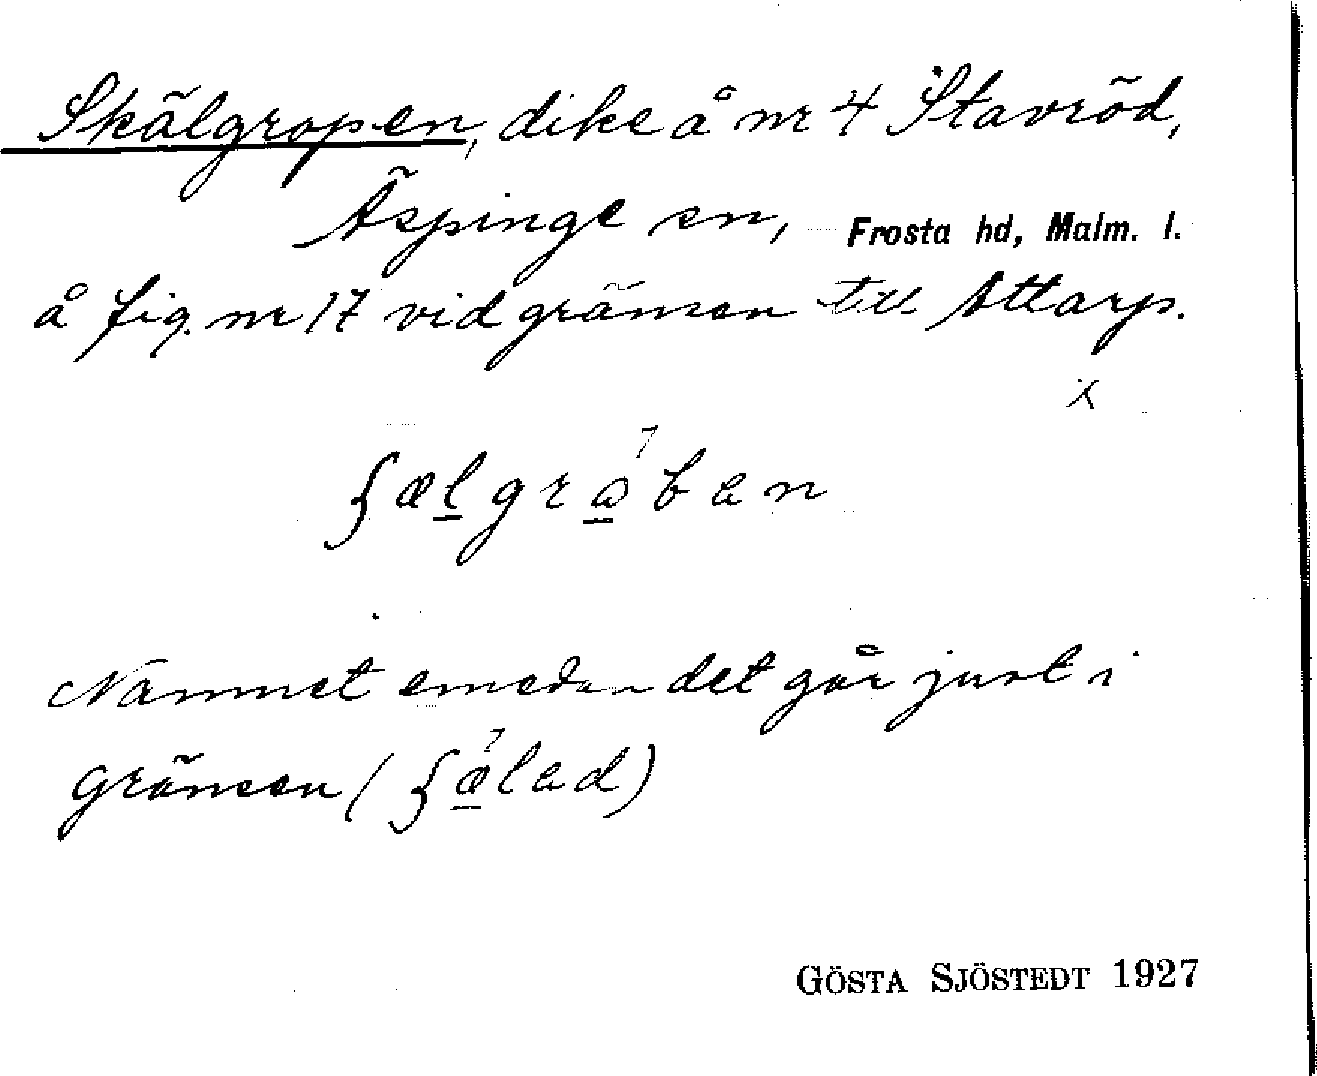 Skälgropen, dike å nr 4 Stavröd,
Äspinge sn, Frosta hd, Malm. l.
å fig. nr 17 vid gränsen till Attarp.
x
ʃælgraban
Namnet emedan det går just i
gränsen (ʃælad)
GÖSTA SJÖSTEDT 1927